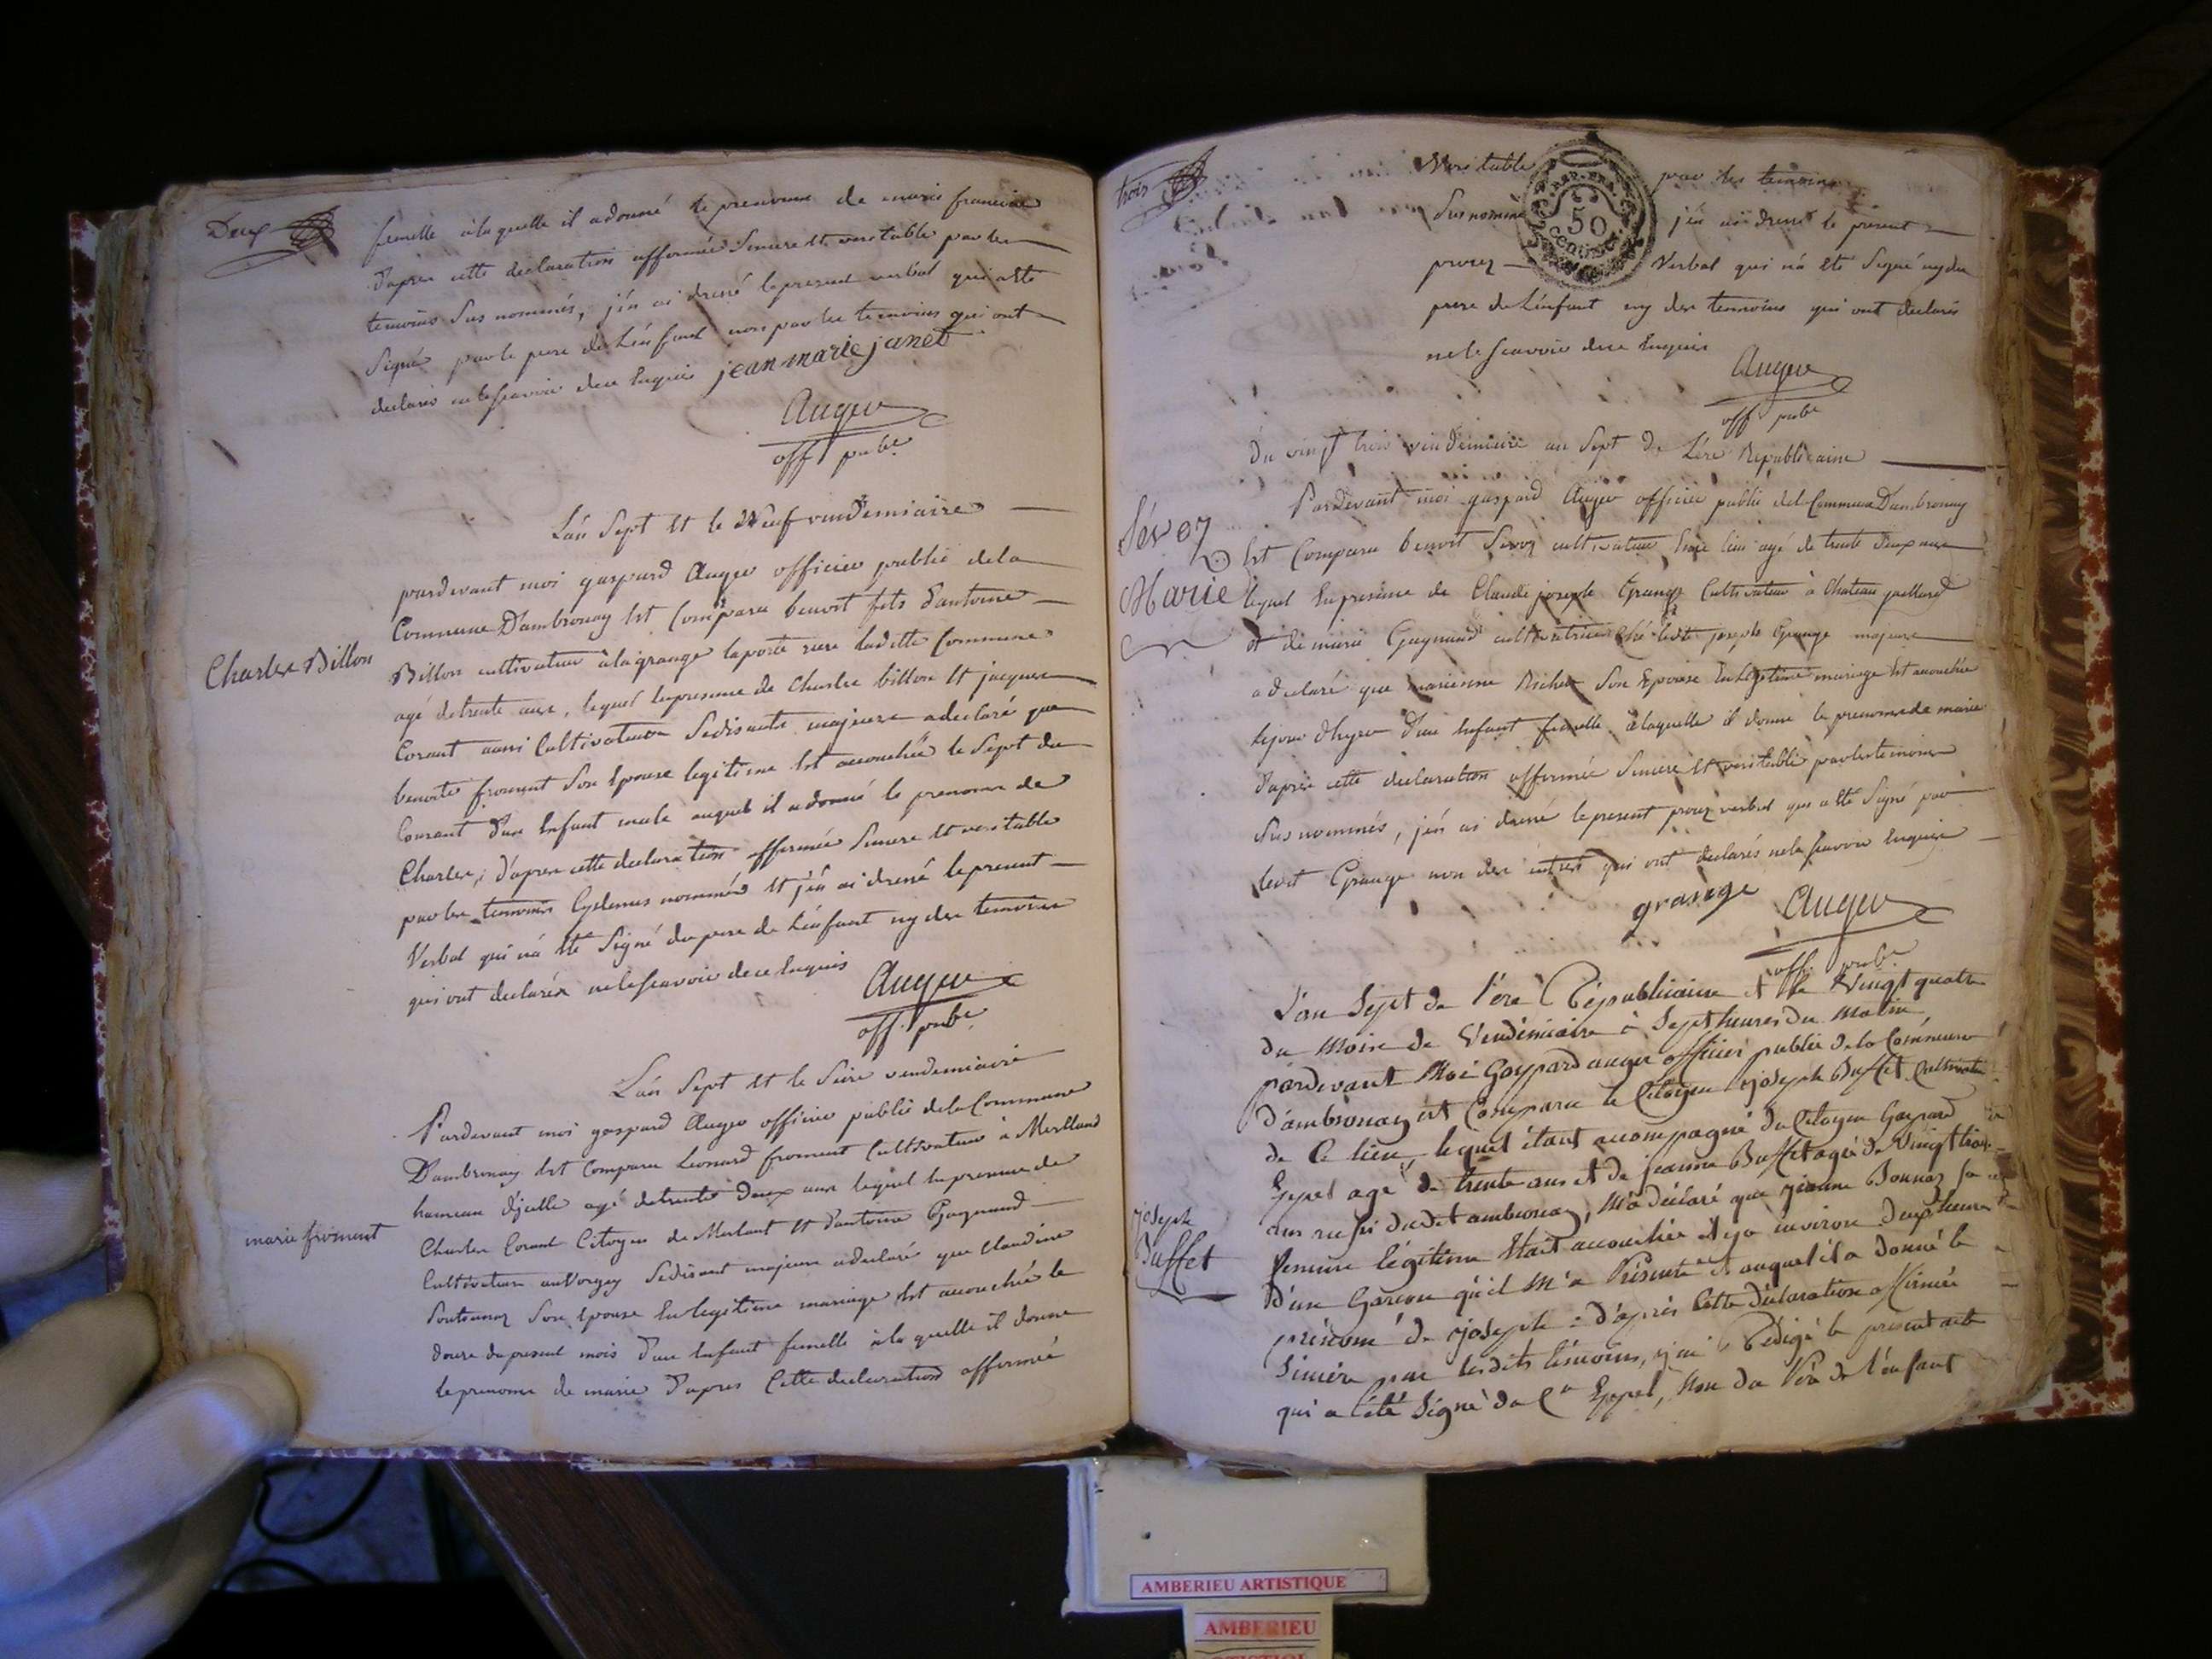 Deux
femelle à la quelle il a donné le prenome de marie francoise
d'apres cette declaration affermée Sincere et veritable par les
temoins Sus nommés, j'én ai dressé le present verbal qui a été
Signé par le pere de L'énfant non par les temoins qui ont
declarés ne le scavoir de ce Enquis jean marie janet
Auger
off pub.
L'án Sept et le Neuf vendemiaire
pardevant moi gaspard Auger officier public de la
Commune D'ambronay Est Comparu benoit fils d'antoine
Charles Billon
Billon cultivateur à la grange laporte riere laditte Commune
agé de trente ans, lequel En presence de Charles billon Et jacques
Corant aussi Cultivateurs Sedisants majeurs a declaré que
benoite froment Son Epouse legitime Est accouchée le Sept du
Courant d'un Enfant male auquel il a donné le prenome de
Charles, d'apres cette declaration affermée Sincere et veritable
par les temoins Cydessus nommés Et j'én ai dressé le present
Verbal qui n'a été Signé du pere de L'énfant ny des temoins
qui ont declarés ne le scavoir de ce Enquis
Auger
off. pub.
L'án Sept et le Seize vendemiaire
Pardevant moi gaspard Auger officier public de la Commune
D'ambronay Est Comparu Leonard froment Cultivateur à Merlland
hameau d'jcelle agé de trente deux ans lequel En presence de
marie froment
Charles Corant Citoyen de Merlant Et d'antoine Gaynard
Cultivateur au Vorgey Sedisant majeurs a declaré que Claudine
Soutonnaz Son Epouse En legitime mariage Est accouchée le
douze du present mois d'un Enfant femelle à la quelle il donne
le prenome de marie d'apres Cette declaration affermée
trois
Veritable par les temoins
Susnommés j'én ai dressé le présent
procez Verbal qui n'á été Signé ny du
pere de L'énfant ny des temoins qui ont declarés
ne le scavoir de ce Enquis
REP. FRA.
50
CENTIMES
Auger
off pub.
Du vingt trois vindemiaire an Sept De L'ére Republicaine
Pardevant moi gaspard Auger officier public de la Commune D'ambronay
Sévoz
Est Comparu benoit Sevoz cultivateur En ce lieu agé de trente deux ans
Marie
lequel En presence de Claude joseph Grange Cultivateur à Chateau gaillard
et de marie Gaynard cultivatrice chés ledit joseph Grange majeurs
a declaré que marienne Richer Son Epouse En Legitime mariage Est accouchée
le jour d'hyer d'un Enfant femelle à laquelle il donne le prenome de marie
d'après cette declaration affermée Sincere Et veritable par les temoins
Sus nommés, j'én ai dressé le present procez verbal qui a été Signé par
ledit Grange non des autres qui ont declarés ne le scavoir Enquis
grange Auger
off. pub.
L'an Sept de l'ére Républicaine et le Vingt quatre
du Mois de Vendémiaire à Sept heures du Matin,
pardevant Moi Gaspard auger officier public de la Commune
d'ambronay est Comparu le Citoyen joseph Buffet Cultivateur
de Ce lieu, lequel étant accompagné du Citoyen Gaspard
Eppel agé de trente ans et de jeanne Buffet agée de Vingt trois
joseph
ans aussi dudit ambronay, M'a déclaré que jeanne Bonnaz sa
Buffet
femme légitime Etait accouchée il y a environ deux heures
d'un Garcon qu'il M'a Présenté et auquel il a donné le
prénom de joseph : d'après Cette déclaration affirmée
Sincère par lesdits témoins, j'ai Rédigé le present acte
qui a été Signé du Cn Eppel, Non du Père de l'enfant
AMBERIEU ARTISTIQUE
AMBERIEU